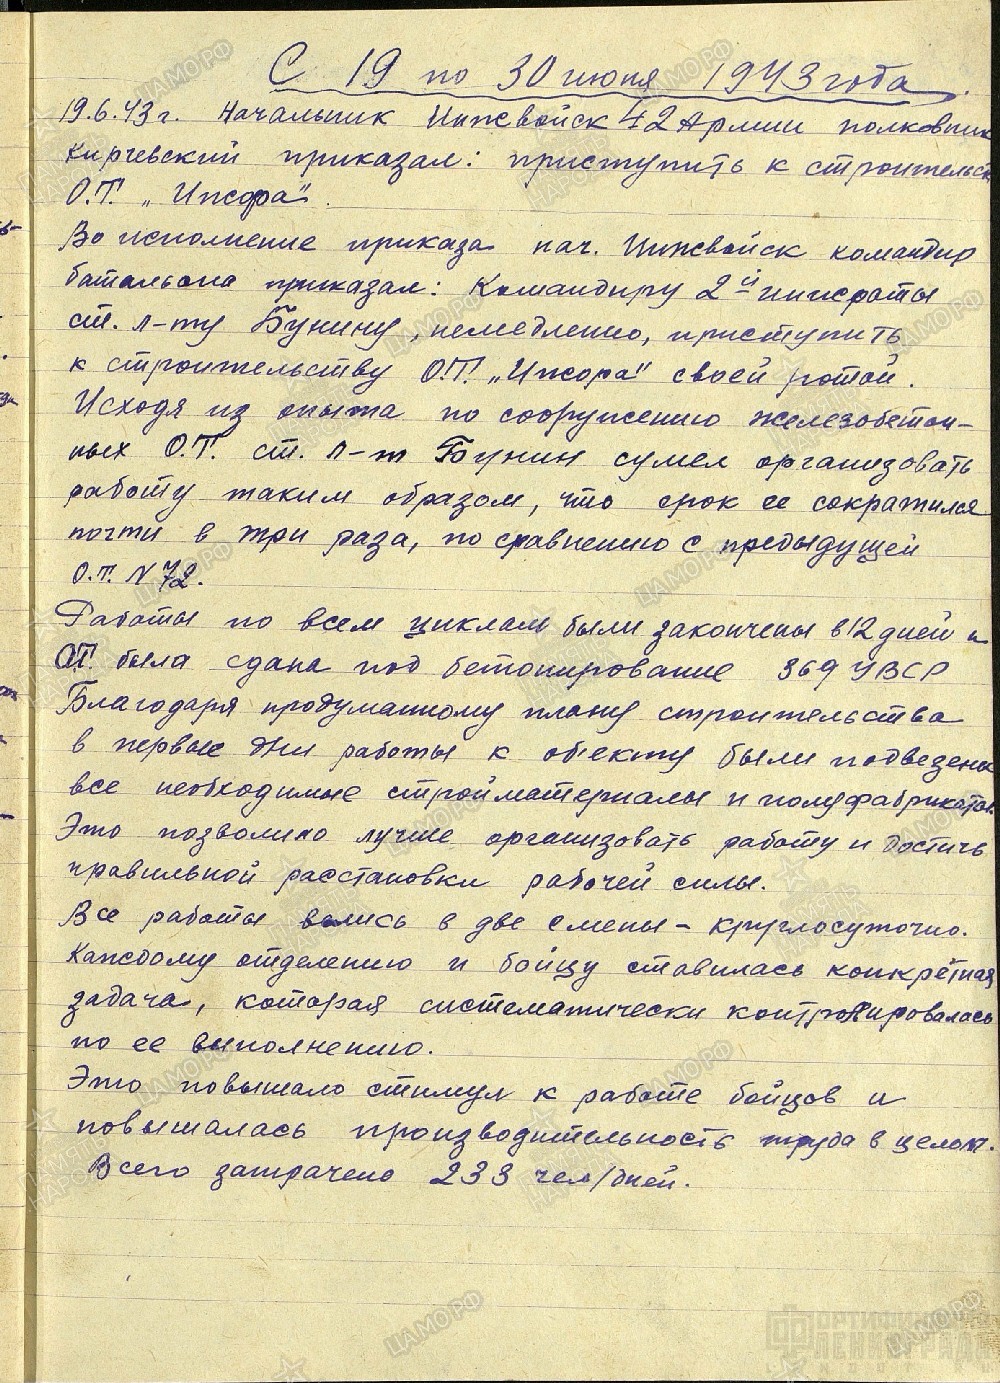 С 19 по 30 июня 1943 года.
19.6.43 г. Начальник Инжвойск 42 Армии полковник
Кирчевский приказал: приступить к строительст
О.Т. „Ижора".
Во исполнение приказа нач. Инжвойск командир
батальона приказал: Командиру 2-й инжроты
ст. л-ту Бунину, немедленно, приступить
к строительству О.Т. „Ижора" своей ротой.
Исходя из опыта по сооружению железобетон-
ных О.Т. ст. л-т Бунин сумел организовать
работу таким образом, что срок ее сократился
почти в три раза, по сравнению с предыдущей
О.Т. N 72.
Работы по всем циклам были закончены в 12 дней и
ОТ. была сдана под бетонирование 369 УВСР
Благодаря продуманному плану строительства
в первые дни работы к объекту были подвезены
все необходимые стройматериалы и полуфабрикаты.
Это позволило лучше организовать работу и достичь
правильной расстановки рабочей силы.
Все работы велись в две смены - круглосуточно.
Каждому отделению и бойцу ставилась конкретная
задача, которая систематически контролировалась
по ее выполнению.
Это повышало стимул к работе бойцов и
повышалась производительность труда в целом.
Всего затрачено 233 чел/дней.
ЦАМО.РФ
ФОРТИФИКАЦИЯ
ЛЕНИНГРАДА